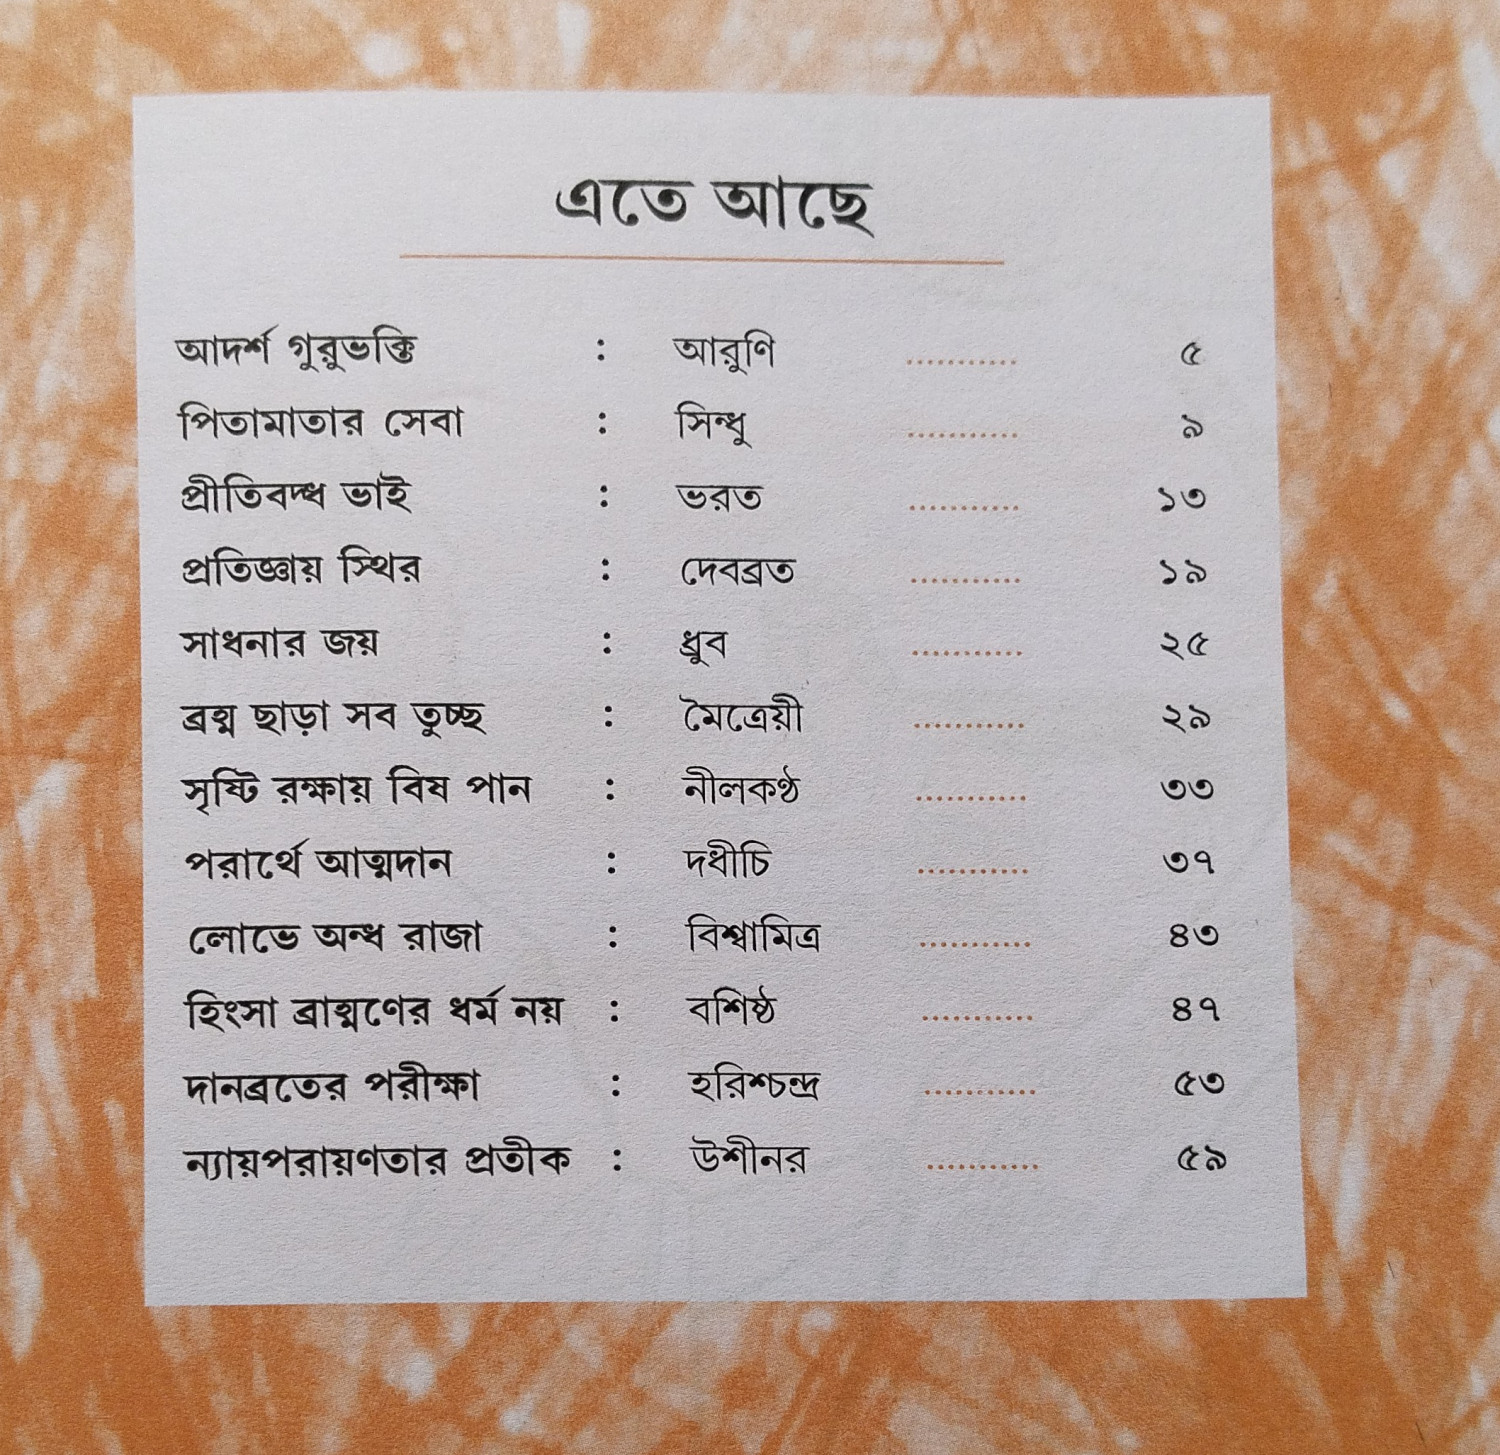 এতে আছে
আদর্শ গুরুভক্তি : আরুণি ........... ৫
পিতামাতার সেবা : সিন্ধু ........... ৯
প্রীতিবদ্ধ ভাই : ভরত ........... ১৩
প্রতিজ্ঞায় স্থির : দেবব্রত ........... ১৯
সাধনার জয় : ধ্রুব ........... ২৫
ব্রহ্ম ছাড়া সব তুচ্ছ : মৈত্রেয়ী ........... ২৯
সৃষ্টি রক্ষায় বিষ পান : নীলকণ্ঠ ........... ৩৩
পরার্থে আত্মদান : দধীচি ........... ৩৭
লোভে অন্ধ রাজা : বিশ্বামিত্র ........... ৪৩
হিংসা ব্রাহ্মণের ধর্ম নয় : বশিষ্ঠ ........... ৪৭
দানব্রতের পরীক্ষা : হরিশ্চন্দ্র ........... ৫৩
ন্যায়পরায়ণতার প্রতীক : উশীনর ........... ৫৯